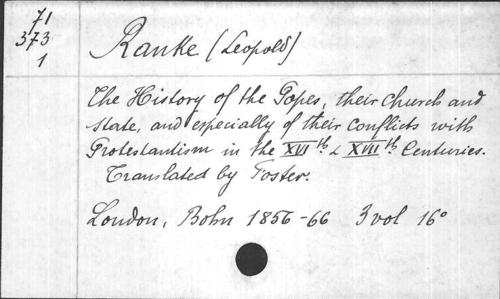 71
373
1
Ranke (Leopold)
The History of the Popes, their church and
state, and especially of their conflicts with
Protestantism in the XVIth & XVIIth Centuries.
Translated by Foster.
London, Bohn 1856-66 3 vol 16°